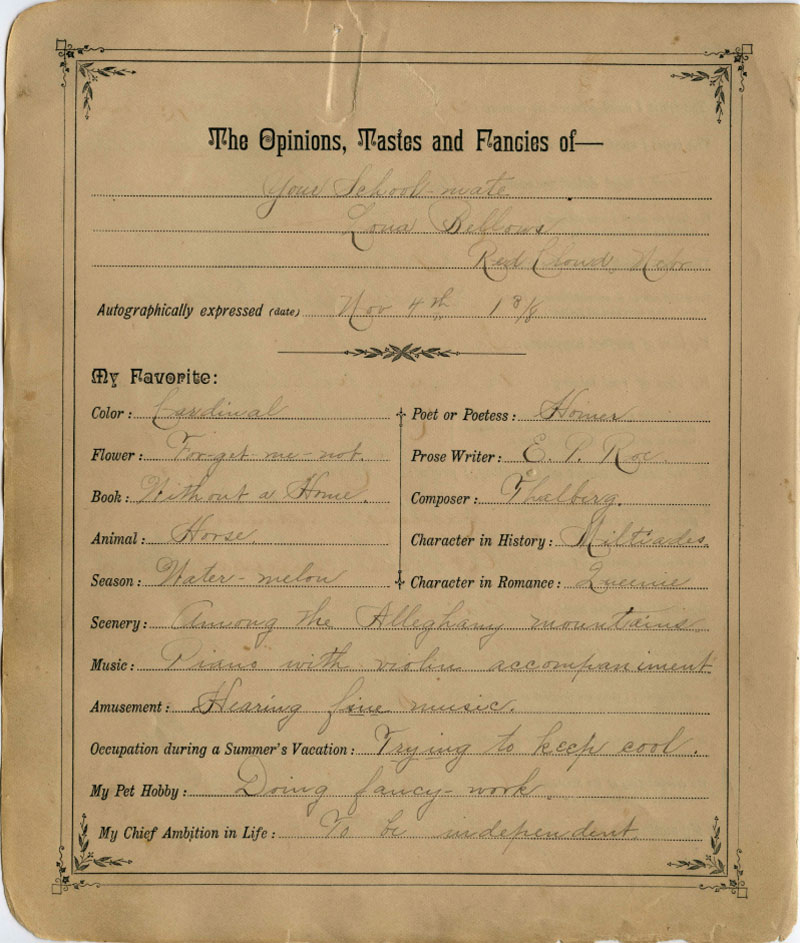 The Opinions, Tastes and Fancies of—
Your School-mate
Lona Bellows
Red Cloud, Nebr
Autographically expressed (date) Nov 4th 18
My Favorite:
Color: Cardinal
Flower: For-get-me-not.
Book: Without a Home.
Animal: Horse.
Season: Water-melon
Poet or Poetess: Homer
Prose Writer: E. P. Roe.
Composer: Thalberg.
Character in History: Miltiades.
Character in Romance: Queenie
Scenery: Among the Alleghany mountains
Music: Piano with violin accompaniment
Amusement: Hearing fine music.
Occupation during a Summer's Vacation: Trying to keep cool.
My Pet Hobby: Doing fancy-work.
My Chief Ambition in Life: To be independent.